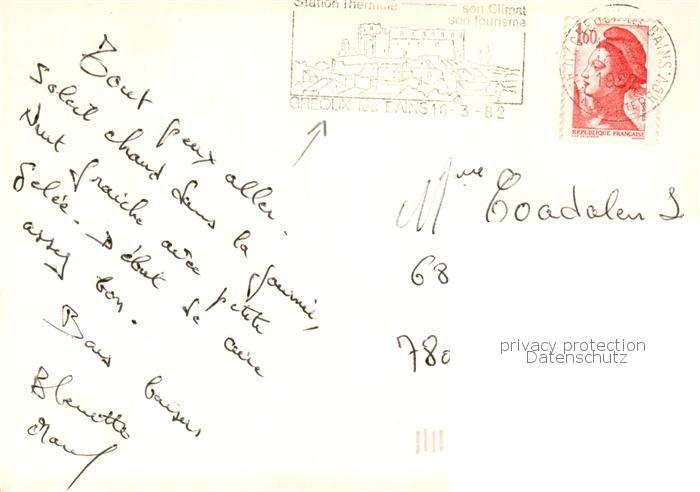 Station Thermale
son Climat
son Tourisme
GREOUX les BAINS 16-3-82
1,60
REPUBLIQUE FRANÇAISE
Tout peux aller.
Soleil chaud dans la journée,
Nuit fraiche avec petite
Gelée. Début de cure
assez bon.
Bons baisers
Blanette
Mme
68
780
privacy protection
Datenschutz